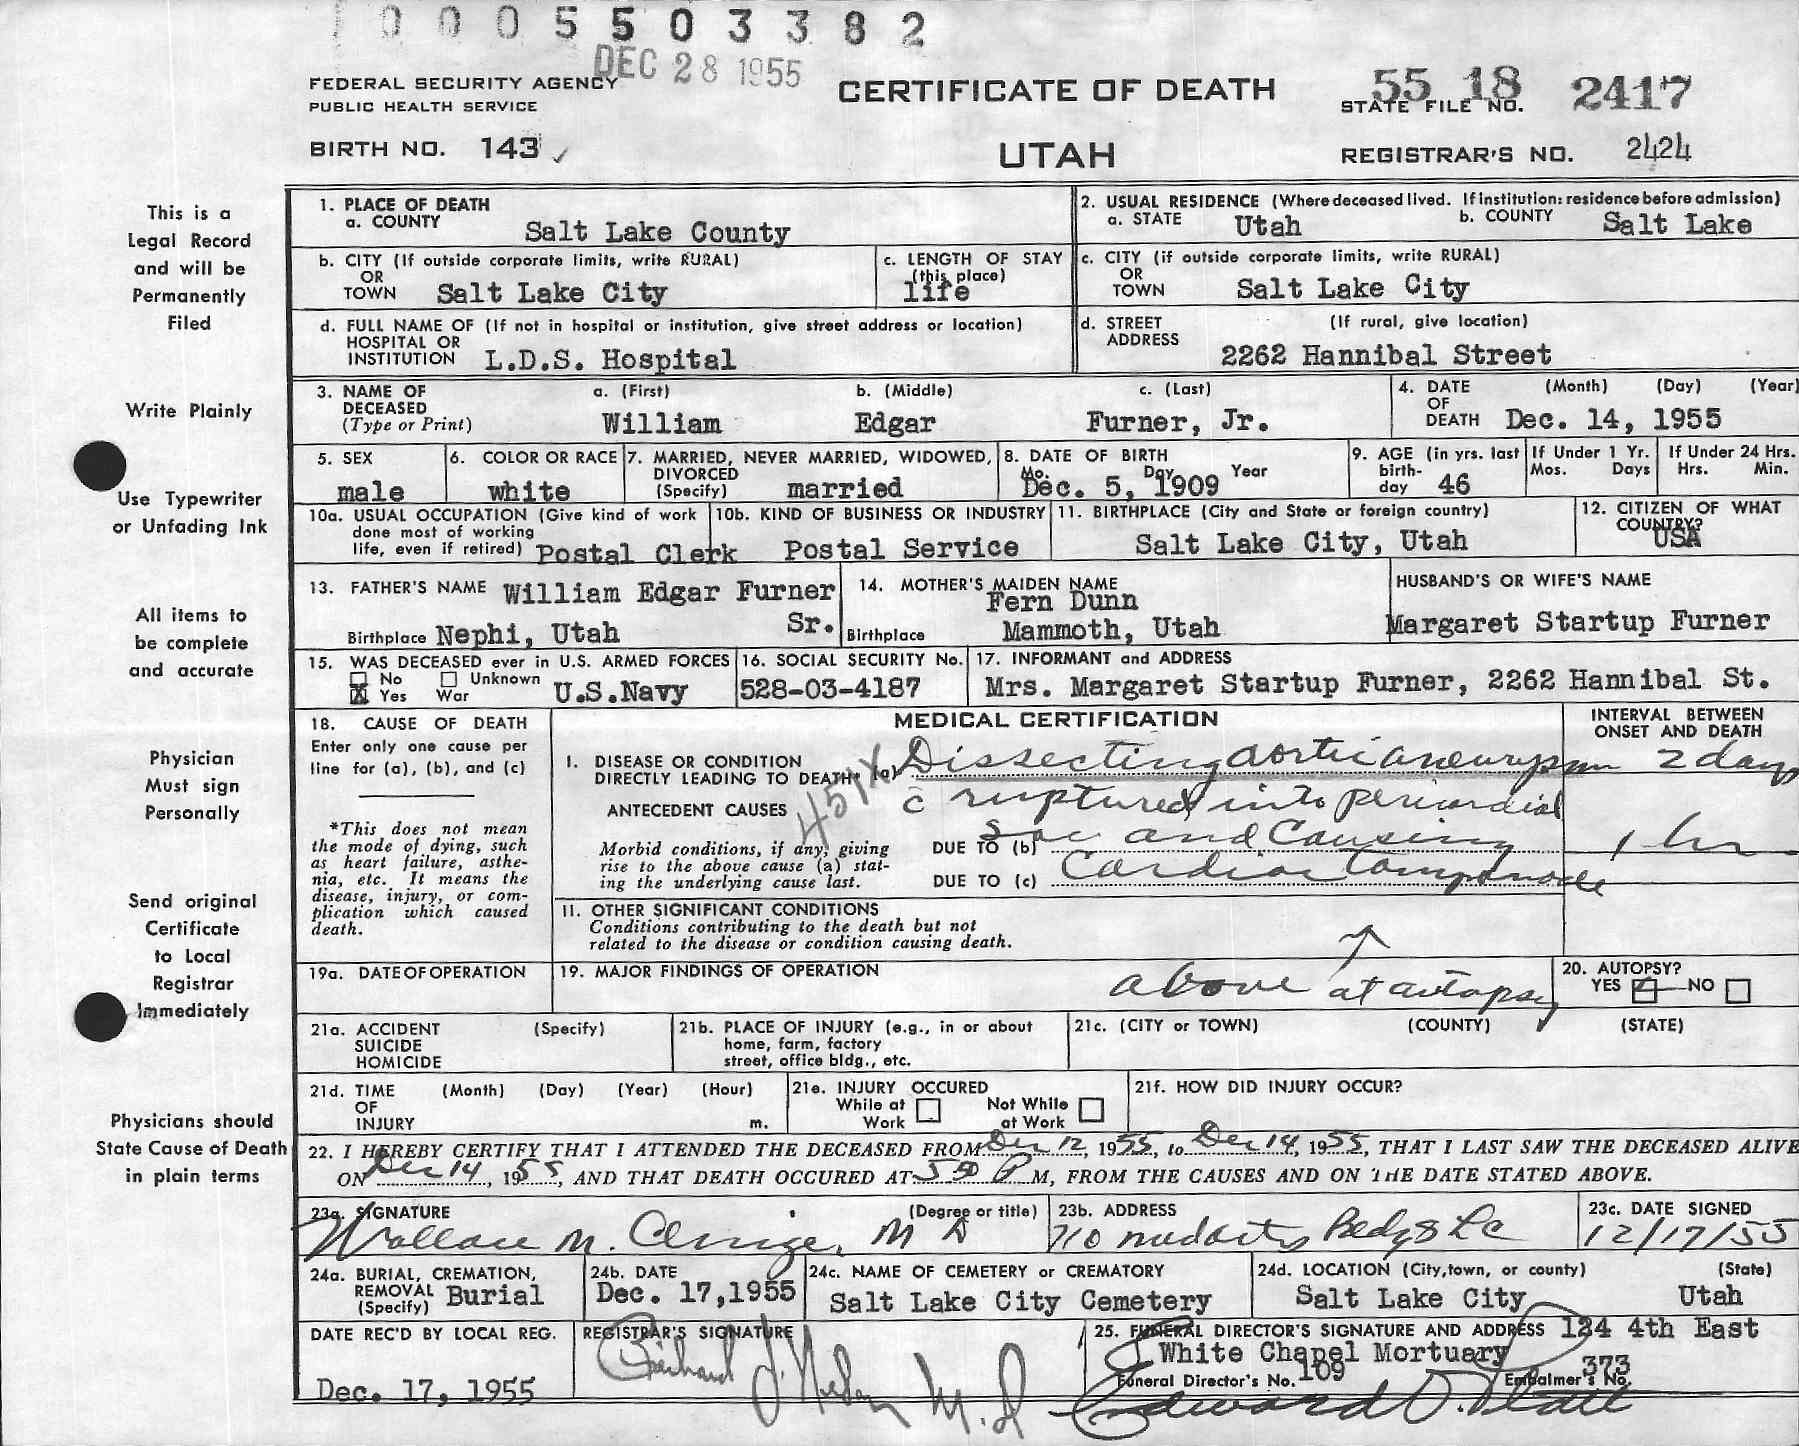 0005503382
DEC 28 1955
FEDERAL SECURITY AGENCY
PUBLIC HEALTH SERVICE
CERTIFICATE OF DEATH
STATE FILE NO. 55 18 2417
BIRTH NO. 143
UTAH
REGISTRAR'S NO. 2424
This is a
Legal Record
and will be
Permanently
Filed
Write Plainly
Use Typewriter
or Unfading Ink
All items to
be complete
and accurate
Physician
Must sign
Personally
Send original
Certificate
to Local
Registrar
Immediately
Physicians should
State Cause of Death
in plain terms
1. PLACE OF DEATH
a. COUNTY Salt Lake County
2. USUAL RESIDENCE (Where deceased lived. If institution: residence before admission)
a. STATE Utah b. COUNTY Salt Lake
b. CITY (If outside corporate limits, write RURAL)
OR
TOWN Salt Lake City
c. LENGTH OF STAY
(this place)
life
c. CITY (if outside corporate limits, write RURAL)
OR
TOWN Salt Lake City
d. FULL NAME OF (If not in hospital or institution, give street address or location)
HOSPITAL OR
INSTITUTION L.D.S. Hospital
d. STREET (If rural, give location)
ADDRESS
2262 Hannibal Street
3. NAME OF a. (First) b. (Middle) c. (Last)
DECEASED
(Type or Print) William Edgar Furner, Jr.
4. DATE (Month) (Day) (Year)
OF
DEATH Dec. 14, 1955
5. SEX
male
6. COLOR OR RACE
white
7. MARRIED, NEVER MARRIED, WIDOWED,
DIVORCED
(Specify) married
8. DATE OF BIRTH
Mo. Day Year
Dec. 5, 1909
9. AGE (in yrs. last
birth-
day 46
If Under 1 Yr.
Mos. Days
If Under 24 Hrs.
Hrs. Min.
10a. USUAL OCCUPATION (Give kind of work
done most of working
life, even if retired) Postal Clerk
10b. KIND OF BUSINESS OR INDUSTRY
Postal Service
11. BIRTHPLACE (City and State or foreign country)
Salt Lake City, Utah
12. CITIZEN OF WHAT
COUNTRY?
USA
13. FATHER'S NAME William Edgar Furner
Sr.
Birthplace Nephi, Utah
14. MOTHER'S MAIDEN NAME
Fern Dunn
Birthplace Mammoth, Utah
HUSBAND'S OR WIFE'S NAME
Margaret Startup Furner
15. WAS DECEASED ever in U.S. ARMED FORCES
No Unknown
X Yes War U.S.Navy
16. SOCIAL SECURITY No.
528-03-4187
17. INFORMANT and ADDRESS
Mrs. Margaret Startup Furner, 2262 Hannibal St.
18. CAUSE OF DEATH
Enter only one cause per
line for (a), (b), and (c)
*This does not mean
the mode of dying, such
as heart failure, asthe-
nia, etc. It means the
disease, injury, or com-
plication which caused
death.
MEDICAL CERTIFICATION
INTERVAL BETWEEN
ONSET AND DEATH
I. DISEASE OR CONDITION
DIRECTLY LEADING TO DEATH* (a) Dissecting aortic aneurysm 2 days
451X
ANTECEDENT CAUSES c̄ ruptured into pericardial
Morbid conditions, if any, giving
rise to the above cause (a) stat-
ing the underlying cause last.
DUE TO (b) Sac and Causing 1 hr
DUE TO (c) Cardiac tamponade
II. OTHER SIGNIFICANT CONDITIONS
Conditions contributing to the death but not
related to the disease or condition causing death.
19a. DATE OF OPERATION
19. MAJOR FINDINGS OF OPERATION
above at autopsy
20. AUTOPSY?
YES NO
21a. ACCIDENT (Specify)
SUICIDE
HOMICIDE
21b. PLACE OF INJURY (e.g., in or about
home, farm, factory
street, office bldg., etc.
21c. (CITY or TOWN) (COUNTY) (STATE)
21d. TIME (Month) (Day) (Year) (Hour)
OF
INJURY m.
21e. INJURY OCCURED
While at Not While
Work at Work
21f. HOW DID INJURY OCCUR?
22. I HEREBY CERTIFY THAT I ATTENDED THE DECEASED FROM Dec 12, 1955, to Dec 14, 1955, THAT I LAST SAW THE DECEASED ALIVE
ON Dec 14, 1955, AND THAT DEATH OCCURED AT 5 50 P M, FROM THE CAUSES AND ON THE DATE STATED ABOVE.
23a. SIGNATURE (Degree or title)
Wallace M. MD
23b. ADDRESS
710 Bldg SLC
23c. DATE SIGNED
12/17/55
24a. BURIAL, CREMATION,
REMOVAL
(Specify) Burial
24b. DATE
Dec. 17,1955
24c. NAME OF CEMETERY or CREMATORY
Salt Lake City Cemetery
24d. LOCATION (City,town, or county) (State)
Salt Lake City Utah
DATE REC'D BY LOCAL REG.
Dec. 17, 1955
REGISTRAR'S SIGNATURE
M.D
25. FUNERAL DIRECTOR'S SIGNATURE AND ADDRESS 134 4th East
White Chapel Mortuary
Funeral Director's No. 109 Embalmer's No. 373
Edward